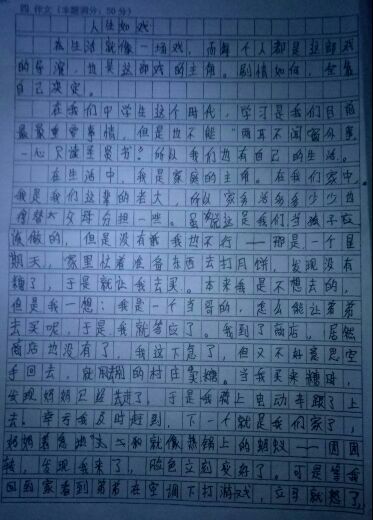 四 作文(本题满分:50分)
人生如戏
在生活就像一场戏,而每个人都是这部戏
的导演,也是这部戏的主角。剧情如何,全靠
自己决定。
在我们中学生这个时代,学习是我们目前
最最重要事情,但是也不能“两耳不闻窗外事
一心只读圣贤书”所以我们也有自己的生活。
在生活中,我是家庭的主角。在我们家中
我是我们这辈的老大,所以家务活多多少少也
得替父母分担一些。虽说这是我们当孩子应
该做的,但是没有我也不行——那是一个星
期天,家里忙着准备东西去打月饼,发现没有
糖了,于是就让我去买。本来我是不想去的,
但是我一想:我是一个当哥的,怎么能让弟弟
去买呢,于是我就答应了。我到了商店,居然
商店也没有了,我这下急了,但又不好意思空
手回去,就用别的村庄买糖。当我买来糖时,
发现奶奶已经走了,于是我骑上电动车跟了上
去。幸亏我及时赶到,下一个就是我们家了,
奶奶着急地就像热锅上的蚂蚁——团团
转,发现我来了,脸色立刻变好了。可是等我
回到家看到弟弟在空调下打游戏,立马就怒了